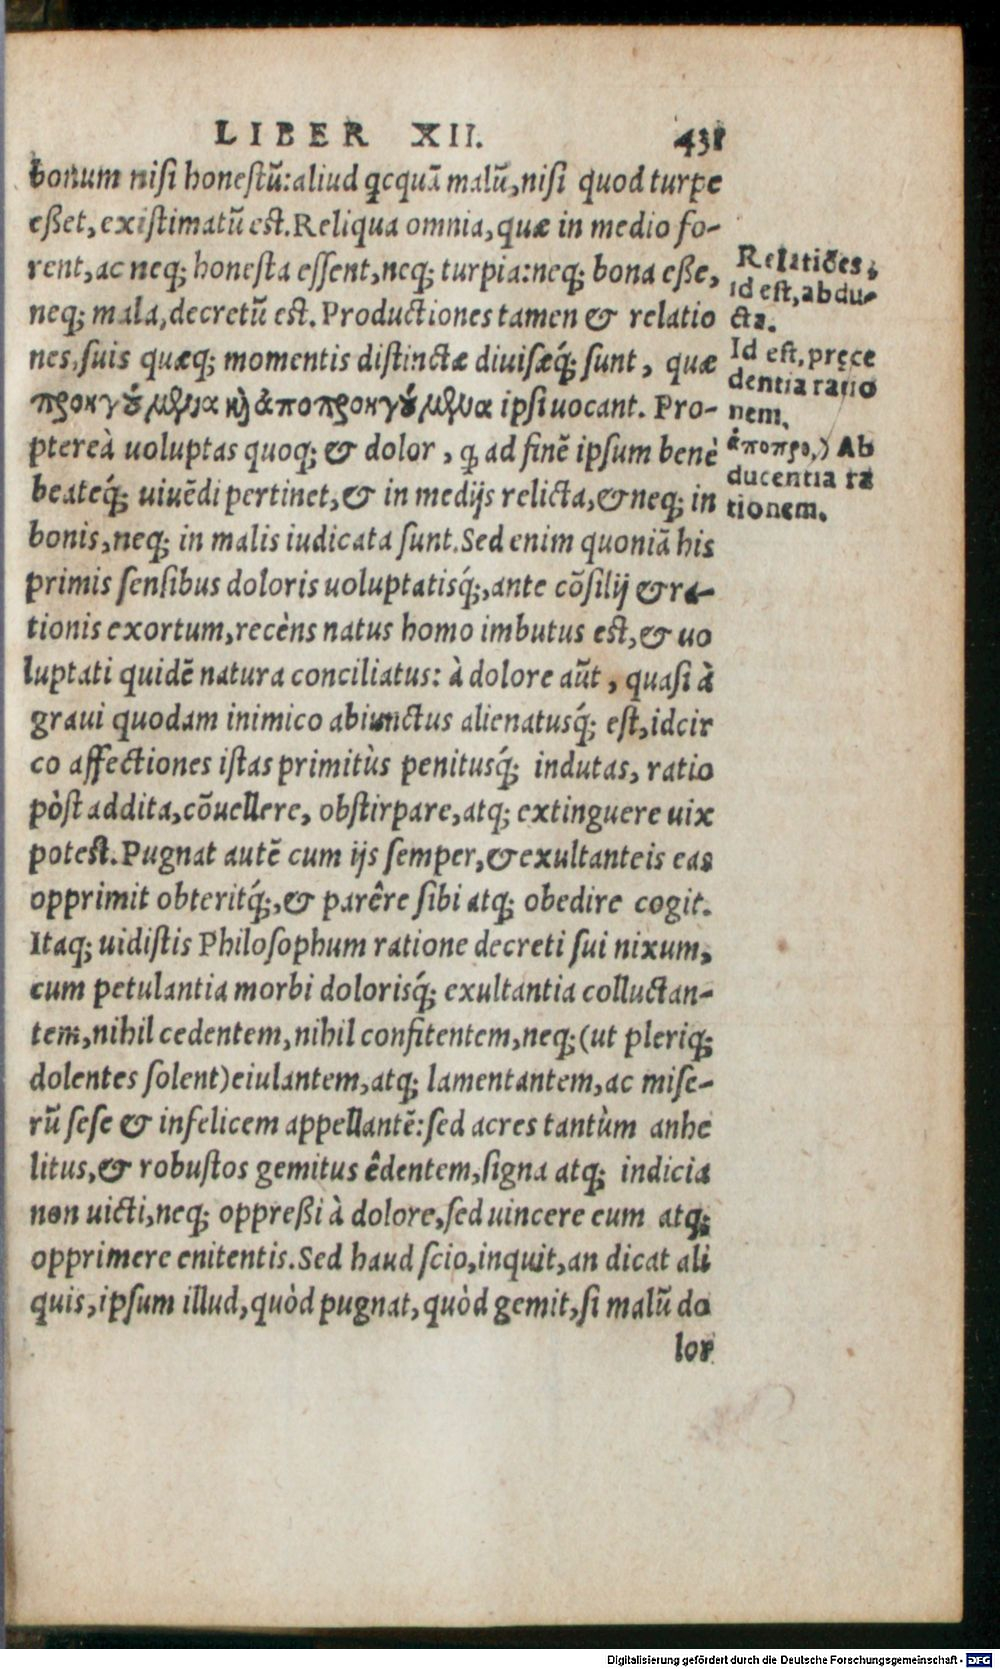 LIBER XII. 431
bonum nisi honestū: aliud qcquā malū, nisi quod turpe
eßet, existimatū est. Reliqua omnia, quæ in medio fo-
rent, ac neq; honesta essent, neq; turpia: neq; bona eße,
neq; mala, decretū est. Productiones tamen & relatio
nes, suis quæq; momentis distinctæ diuisæq́; sunt, quæ
προηγούμενα καὶ ἀποπροηγούμενα ipsi uocant. Pro-
ptereà uoluptas quoq; & dolor, ꝙ ad finē ipsum benè
beateq́; uiuēdi pertinet, & in medijs relicta, & neq; in
bonis, neq; in malis iudicata sunt. Sed enim quoniā his
primis sensibus doloris uoluptatisq́;, ante cōsilij & ra-
tionis exortum, recèns natus homo imbutus est, & uo
luptati quidē natura conciliatus: à dolore aūt, quasi à
graui quodam inimico abiunctus alienatusq́; est, idcir
co affectiones istas primitùs penitusq́; indutas, ratio
pòst addita, cōuellere, obstirpare, atq; extinguere uix
potest. Pugnat autē cum ijs semper, & exultanteis eas
opprimit obteritq́;, & parêre sibi atq; obedire cogit.
Itaq; uidistis Philosophum ratione decreti sui nixum,
cum petulantia morbi dolorisq́; exultantia colluctan-
tem, nihil cedentem, nihil confitentem, neq; (ut pleriq;
dolentes solent) eiulantem, atq; lamentantem, ac mise-
rū sese & infelicem appellantē: sed acres tantùm anhe
litus, & robustos gemitus êdentem, signa atq; indicia
non uicti, neq; oppreßi à dolore, sed uincere eum atq;
opprimere enitentis. Sed haud scio, inquit, an dicat ali
quis, ipsum illud, quòd pugnat, quòd gemit, si malū do
lor
Relatiōes,
id est, abdu-
cta.
Id est, pręce
dentia ratio
nem.
ἀποπρο,) Ab
ducentia ra
tionem.
Digitalisierung gefördert durch die Deutsche Forschungsgemeinschaft - DFG